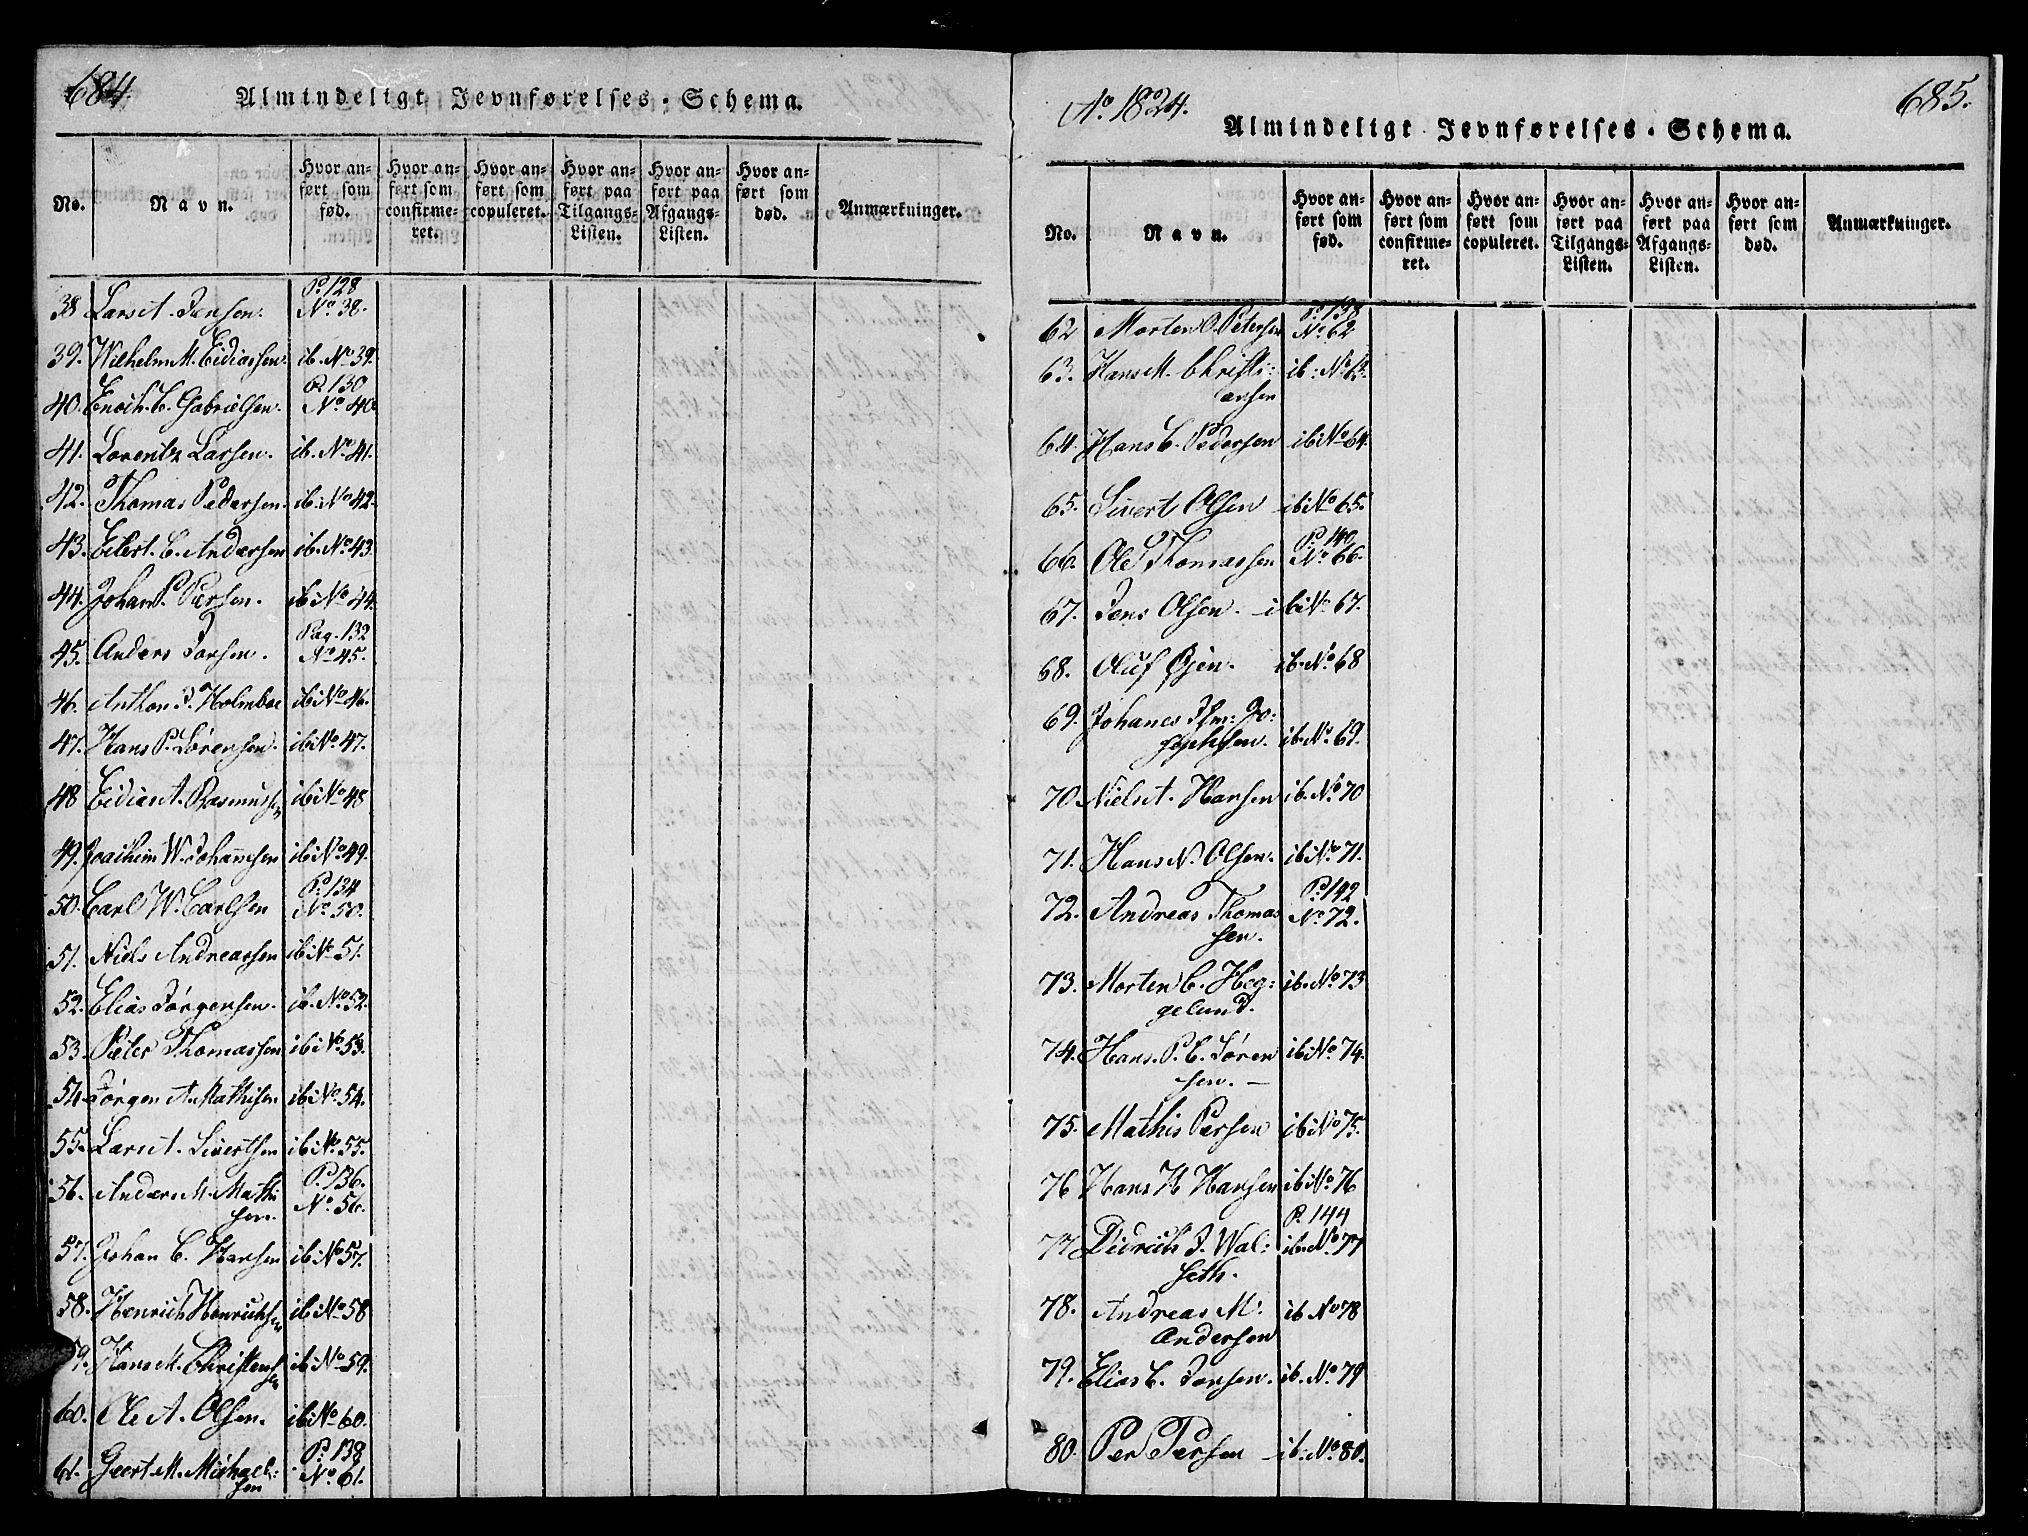 684.
Almindeligt Jevnførelses-Schema.
No.
Navn.
Hvor anført som fød.
Hvor anført som confirmeret.
Hvor anført som copuleret.
Hvor anført paa Tilgangs-Listen.
Hvor anført paa Afgangs-Listen.
Hvor anført som død.
Anmærkninger.
38 Lars A. Jensen. P. 128 No. 38.
39. Wilhelm M. Eidiassen. ib. No 39.
40. Enoch C. Gabrielsen. P. 130 No. 40
41. Lorentz Larsen. ib. No 41.
42. Thomas Pedersen. ib. No 42.
43. Eilert C. Andersen ib. No. 43
44. Johan P. Persen. ib No 44.
45. Anders Jonsen. Pag. 132 No 45.
46. Anthon J. Holmboe ib No 46.
47. Hans P. Sørensen. ib No. 47.
48 Eidie A. Rasmussen ib No 48
49. Joachim W. Johannesen ib No. 49.
50. Carl W. Carlsen P. 134 No 50.
51. Niels Andreassen ib No 51.
52. Elias Jørgensen. ib. No. 52.
53. Peter Thomassen ib No 53.
54 Jørgen A. Mathisen ib No. 54.
55. Lars A. Sivertsen ib No 55.
56. Anders M. Mathi
sen. P. 136. No. 56.
57. Johan C. Hansen ib No 57.
58. Henrich Henrichsen ib No 58
59. Hans M. Christensen ib No 59.
60. Ole A. Olsen. ib No 60.
61. Geert M. Michael:
sen P. 138 No. 61.
Ao. 1824.
685.
Almindeligt Jevnførelses-Schema.
No.
Navn.
Hvor anført som fød.
Hvor anført som confirmeret.
Hvor anført som copuleret.
Hvor anført paa Tilgangs-Listen.
Hvor anført paa Afgangs-Listen.
Hvor anført som død.
Anmærkninger.
62 Morten O. Petersen P. 138 No 62
63. Hans M. Christi:
ansen ib: No 63.
64. Hans C. Pedersen ib No 64.
65. Sivert Olsen ib No 65.
66. Ole Thomassen P. 140 No 66.
67. Jens Olsen. ib No. 67.
68. Oluf Gjen. ib. No. 68
69. Johanes Jo:
sephsen. ib. No. 69.
70. Niels A. Hansen ib. No. 70
71. Hans N. Olsen. ib No. 71.
72. Andreas Thomas
sen. P. 142 No. 72.
73. Morten C. Heg:
gelund. ib. No 73
74. Hans. P. C. Søren
sen. — ib No. 74.
75. Mathis Persen ib No 75.
76 Hans H Hansen ib No. 76
77 Didrich J. Wal:
seth. P. 144 ib No. 77
78. Andreas M.
Andersen ib. No 78
79. Elias C. Jonsen. ib. No. 79
80. Per Persen ib. No. 80.